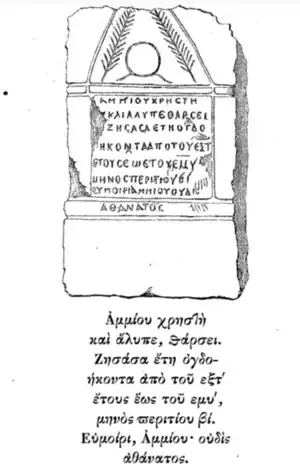 ΑΜΜΙΟΥΧΡΗϹΤΗ
ΚΑΙΑΛΥΠΕΘΑΡϹΕΙ
ΖΗϹΑϹΑΕΤΗΟΓΔΟ
ΗΚΟΝΤΑΑΠΟΤΟΥΕΞΤ
ΕΤΟΥϹΕΩϹΤΟΥΕΜΥ
ΜΗΝΟϹΠΕΡΙΤΙΟΥΒΙ
ΕΥΜΟΙΡΙΑΜΜΙΟΥΟΥΔΙϹ
ΑΘΑΝΑΤΟϹ
Ἀμμίου χρησ7ὴ
καὶ ἄλυπε, θάρσει.
Ζησᾶσα ἔτη ὀγδο-
ήκοντα ἀπὸ τοῦ εξτʹ
ἔτους ἕως τοῦ εμυʹ,
μηνὸς περιτίου βί.
Εὐμοίρι, Ἀμμίου· οὐδὶς
ἀθάνατος.